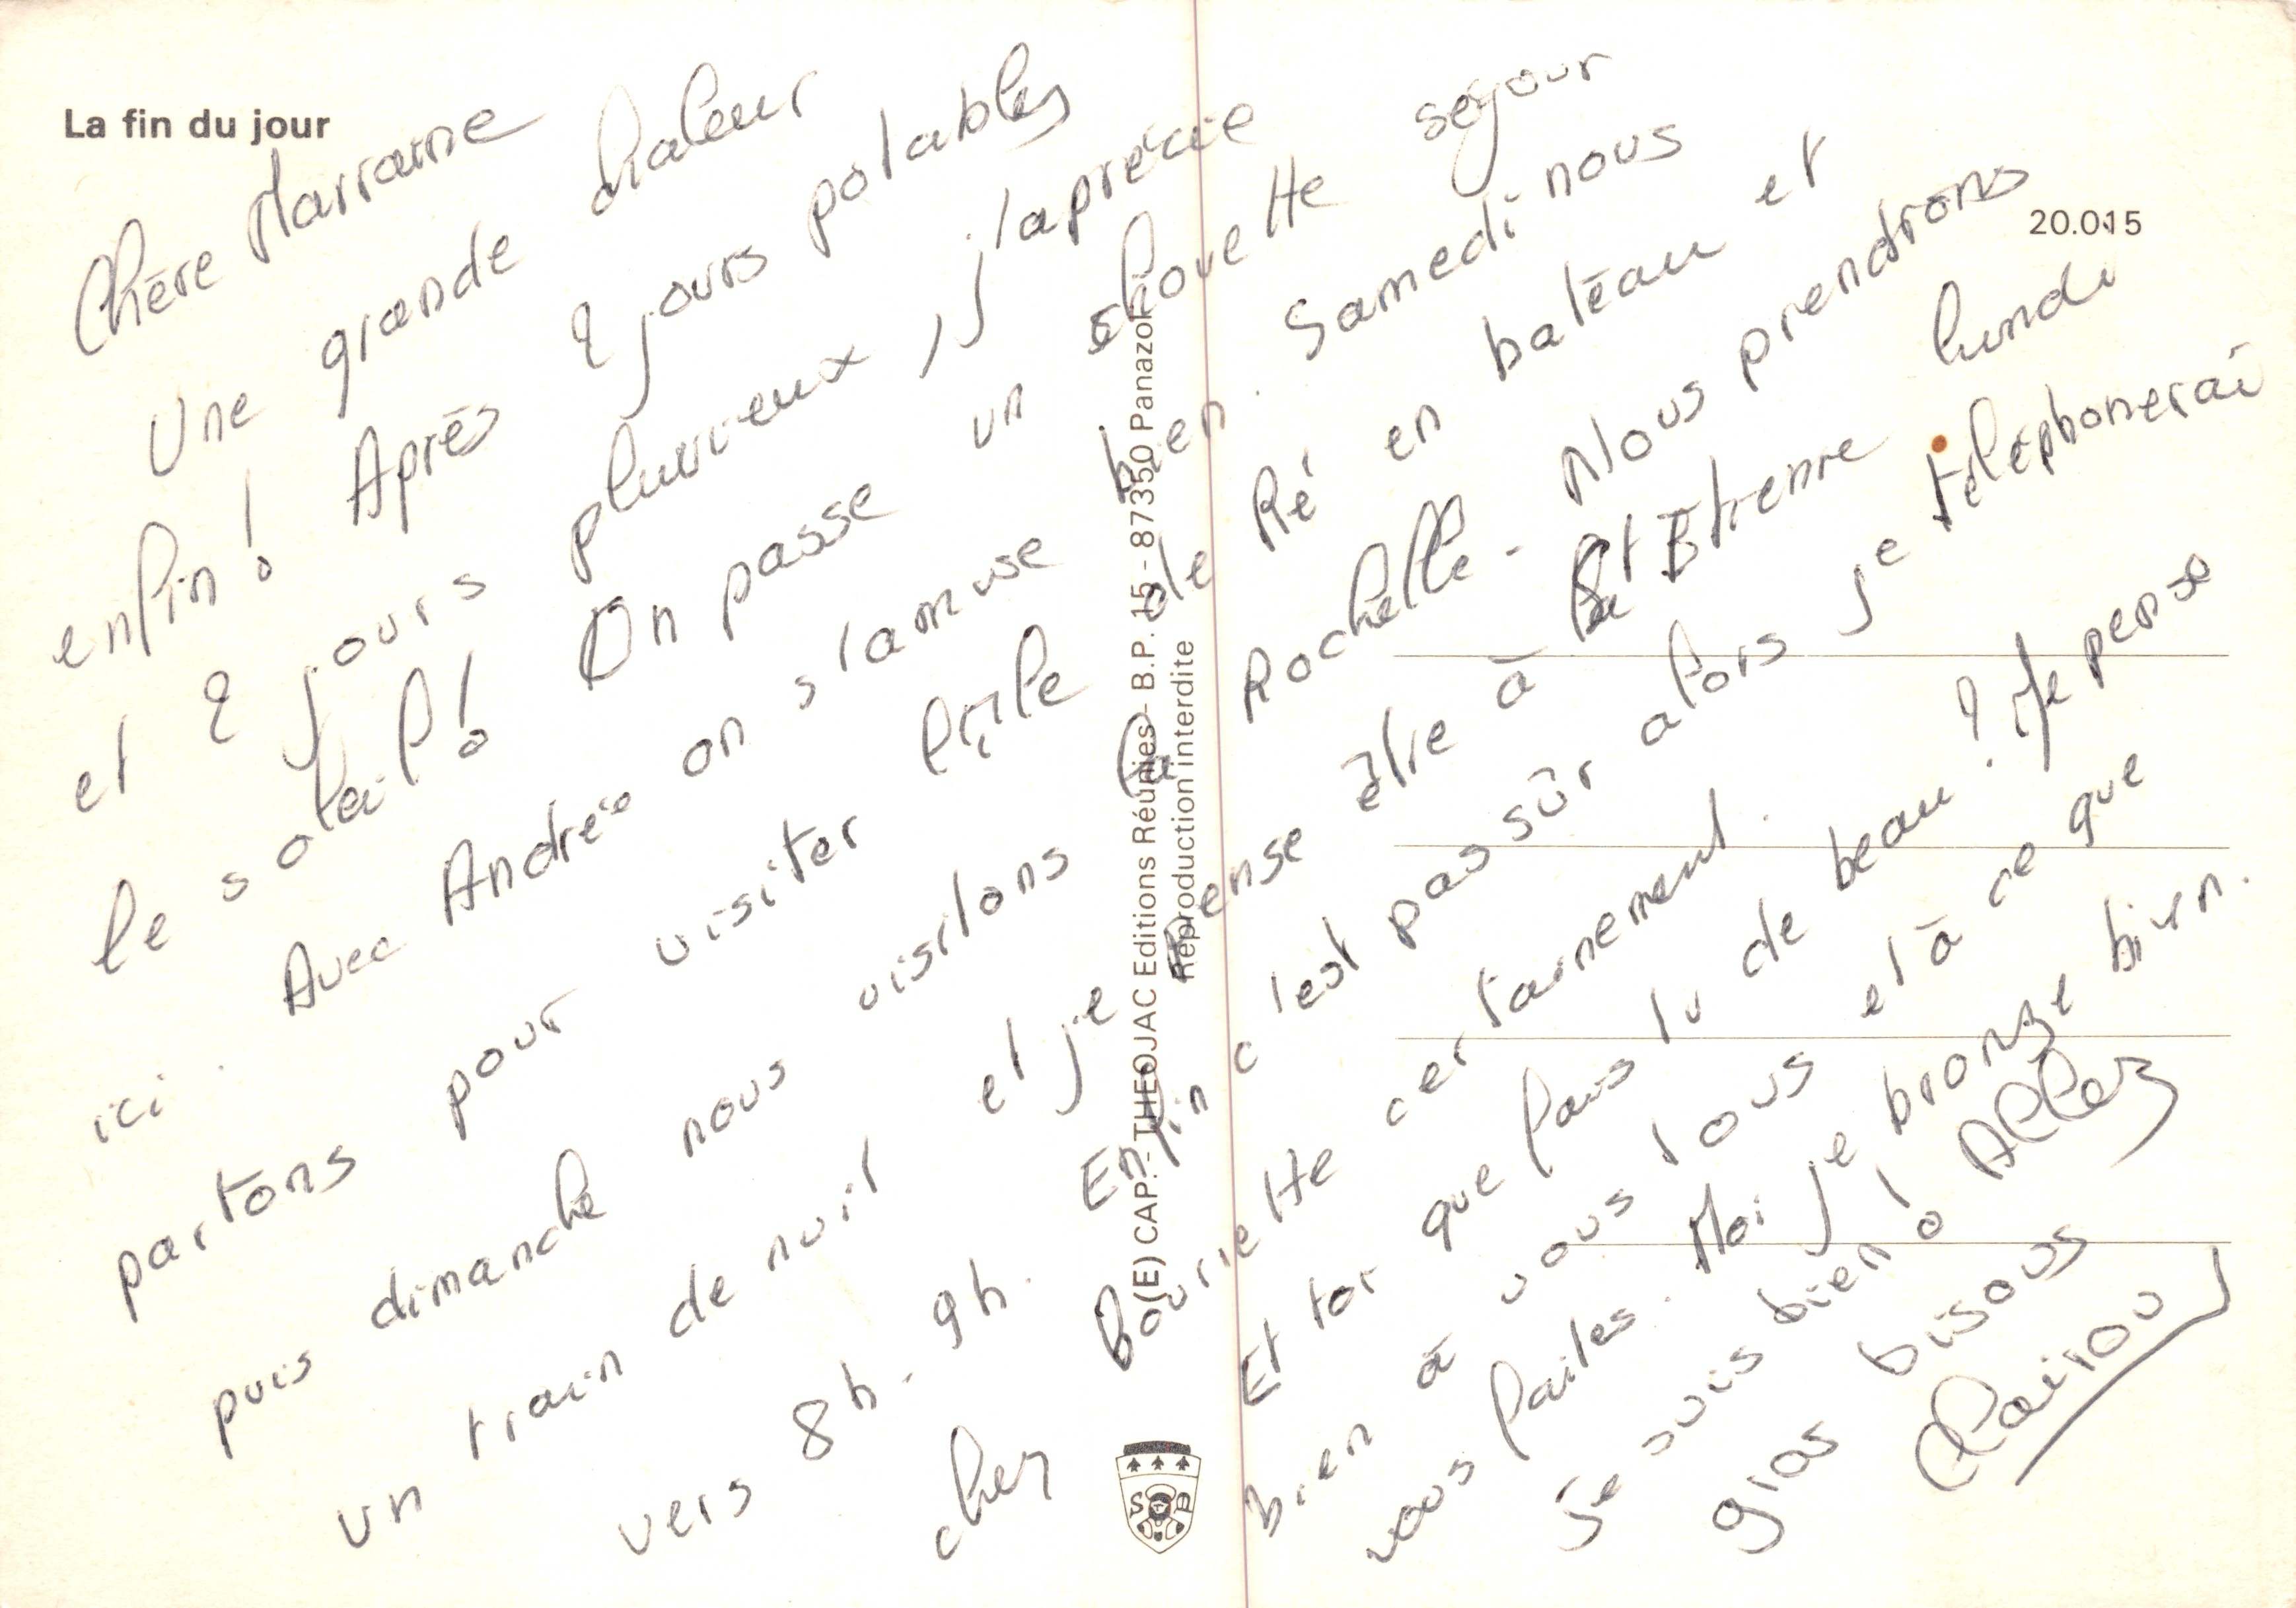 La fin du jour
20.015
Chère Marraine
Une grande chaleur
enfin ! Après 2 jours potables
et 2 jours pluvieux, j'aprécie
le soleil ! On passe un chouette séjour
ici. Avec Andrée on s'amuse bien. Samedi nous
partons pour visiter l'île de Ré en bateau et
puis dimanche nous visitons la Rochelle - Nous prendrons
un train de nuit et je pense être à St Etienne lundi
vers 8h. 9h. Enfin c'est pas sûr alors je téléphonerai
chez certainement.
Et toi que fais tu de beau ? Je pense
bien à vous tous et à ce que
vous faites. Moi je bronze bien.
Je suis bien ! Allez
gros bisous
Clairou
(E) CAP. - THEOJAC Editions Réunies - B.P. 15 - 87350 Panazol
Reproduction interdite